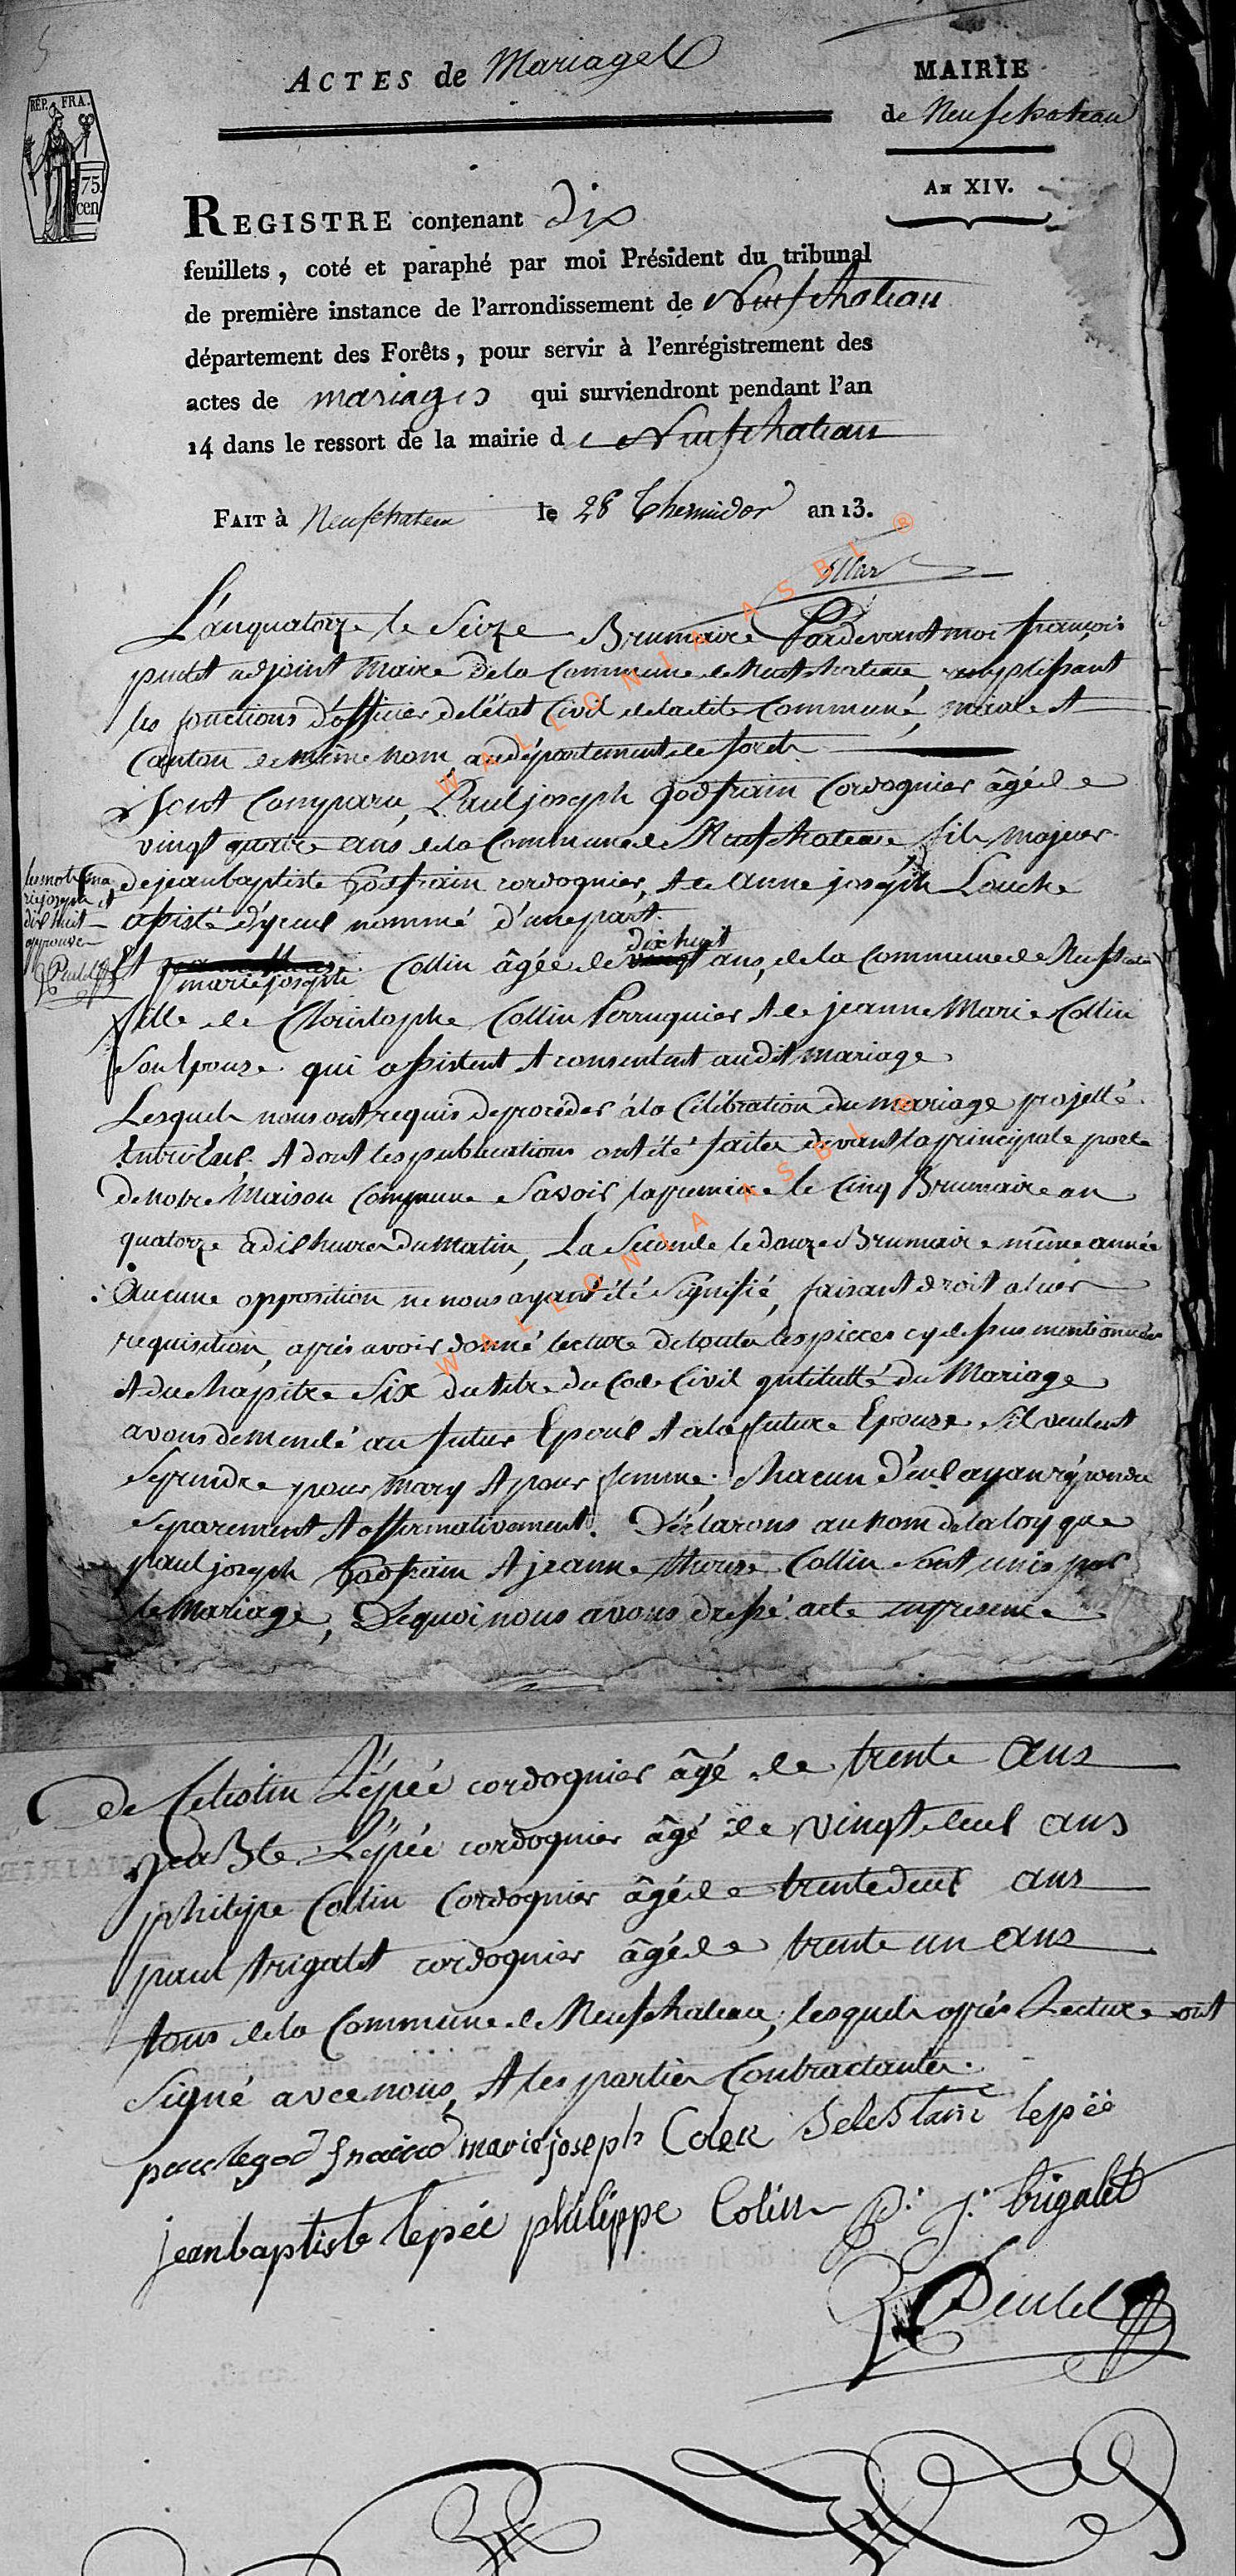 5
ACTES de Mariages
MAIRIE
de Neufchateau
AN XIV.
RÉP. FRA.
75
cen
REGISTRE contenant dix
feuillets, coté et paraphé par moi Président du tribunal
de première instance de l'arrondissement de Neufchateau
département des Forêts, pour servir à l'enrégistrement des
actes de mariages qui surviendront pendant l'an
14 dans le ressort de la mairie de Neufchateau
FAIT à Neufchateau le 28 Thermidor an 13.
L'an quatorze le Seize Brumaire Pardevant moi françois
adjoint Maire de la Commune de Neufchateau, remplissant
les fonctions d'officier de l'état Civil de ladite Commune, mairie et
Canton de même nom, au département de forets
Sont Comparu, Paul joseph Godfrain Cordognier âgé de
vingt quatre ans de la Commune de Neufchateau fils majeur
de jean baptiste Godfrain cordognier, et de Anne joseph Louche
assisté d'yceux nommé d'une part.
les mots ma
rie joseph et
dix huit
approuvé
Et marie joseph Collin âgée de dix huit ans, de la Commune de Neufchateau
fille de Christophe Collin Perruquier et de jeanne Marie Collin
Son Epouse qui assistent et consentent audit mariage
Lesquels nous ont requis de procéder à la Célébration du mariage projetté
Entre Eux, et dont les publications ont été faites devant la principale porte
de notre Maison Commune Savoir la premiere le Cinq Brumaire an
quatorze à dix heures du Matin, La Seconde le douze Brumaire même année
Aucune opposition ne nous ayant été Signifié, faisant droit a leur
requisition, après avoir donné lecture de toutes les pieces cy dessus mentionnées
et du chapitre Six du titre du Code Civil intitulté du Mariage
avons demendé au futur Epoux et a la future Epouse S'il veulent
se prendre pour Mary et pour femme. chacun d'eux ayant répondu
séparement et affirmativement. Déclarons au nom de la loy que
paul joseph Godfrain et jeanne therese Collin Sont unis par
le Mariage, De quoi nous avons dressé acte en presence
De Celestin Lépée cordognier âgé de trente Ans
Jean Bte Lépée cordognier âgé de vingt deux ans
philippe Collin Cordognier âgé de trente deux ans
paul trigalet cordognier âgé de trente un ans
tous de la Commune de Neufchateau, lesquels après Lecture ont
Signé avec nous, et les parties Contractantes.
marie joseph Colen Selestain lepée
jean baptiste lepée philippe Colin P. j. trigalet